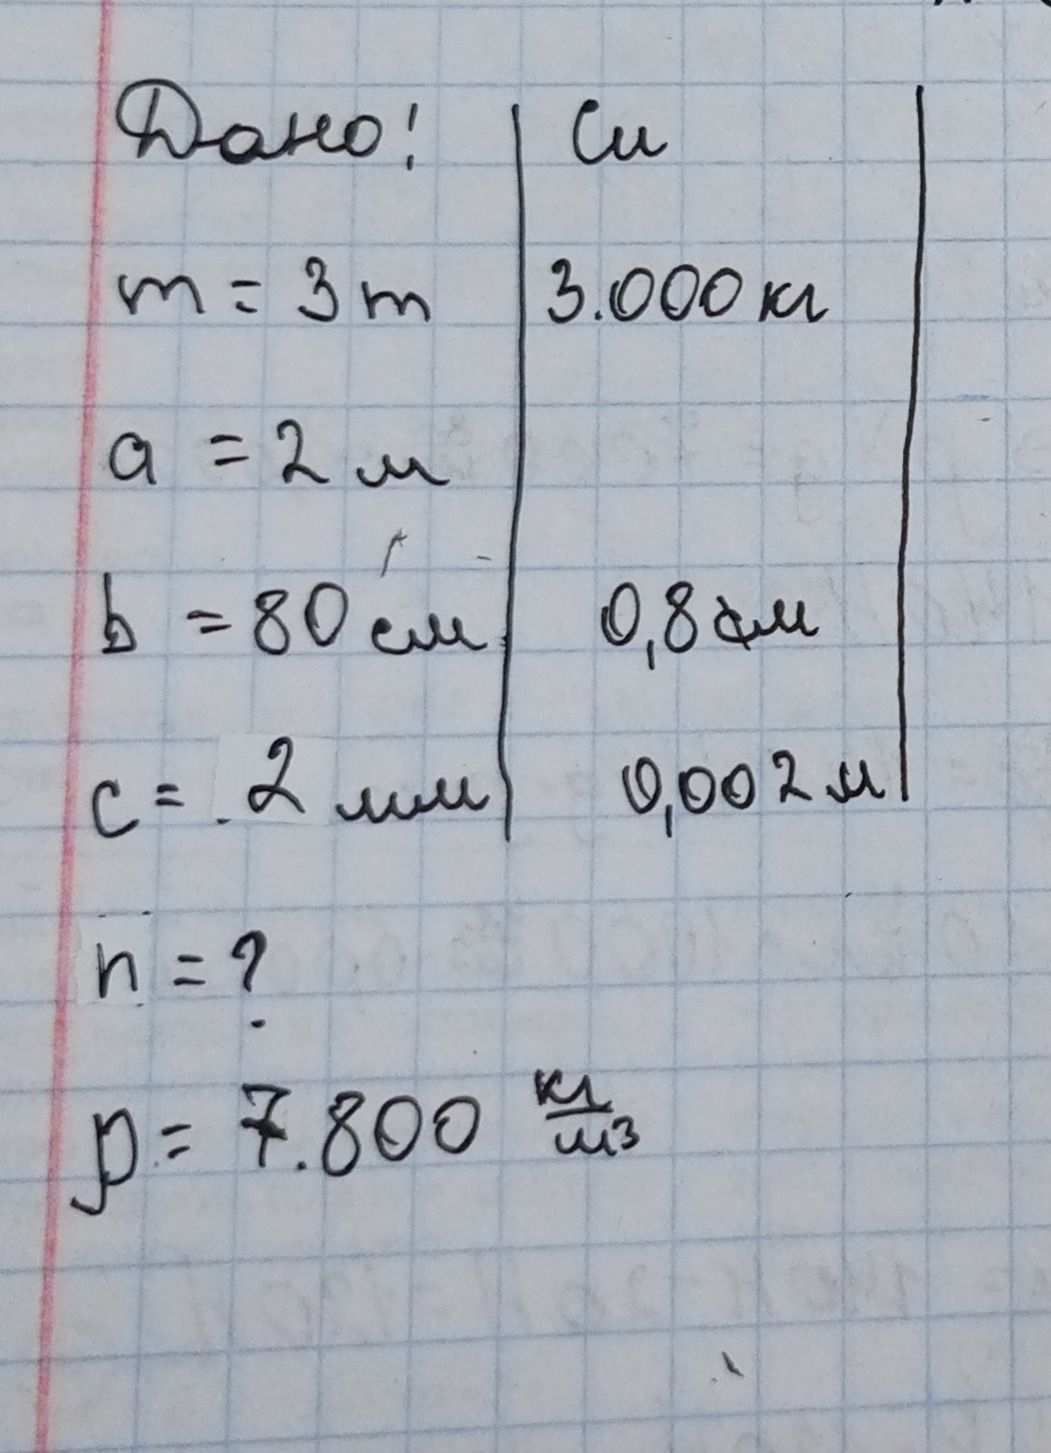 Дано! Си
m = 3 т 3.000 кг
a = 2 м
b = 80 см 0,8 м
c = 2 мм 0,002 м
n = ?
ρ = 7.800 кг/м3